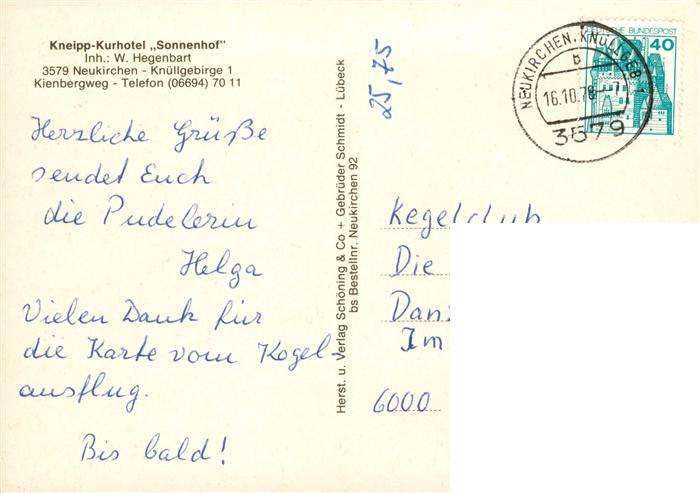 Kneipp-Kurhotel „Sonnenhof"
Inh.: W. Hegenbart
3579 Neukirchen - Knüllgebirge 1
Kienbergweg - Telefon (06694) 70 11
Herzliche Grüße
sendet Euch
die Pudelerin
Helga
Vielen Dank für
die Karte vom Kogel-
ausflug.
Bis bald!
Herst. u. Verlag Schöning & Co + Gebrüder Schmidt - Lübeck
bs Bestellnr. Neukirchen 92
25,75
NEUKIRCHEN, KNÜLLGEB 1
B
16.10.78
3579
DEUTSCHE BUNDESPOST
40
Kegelclub
Die
Im
6000